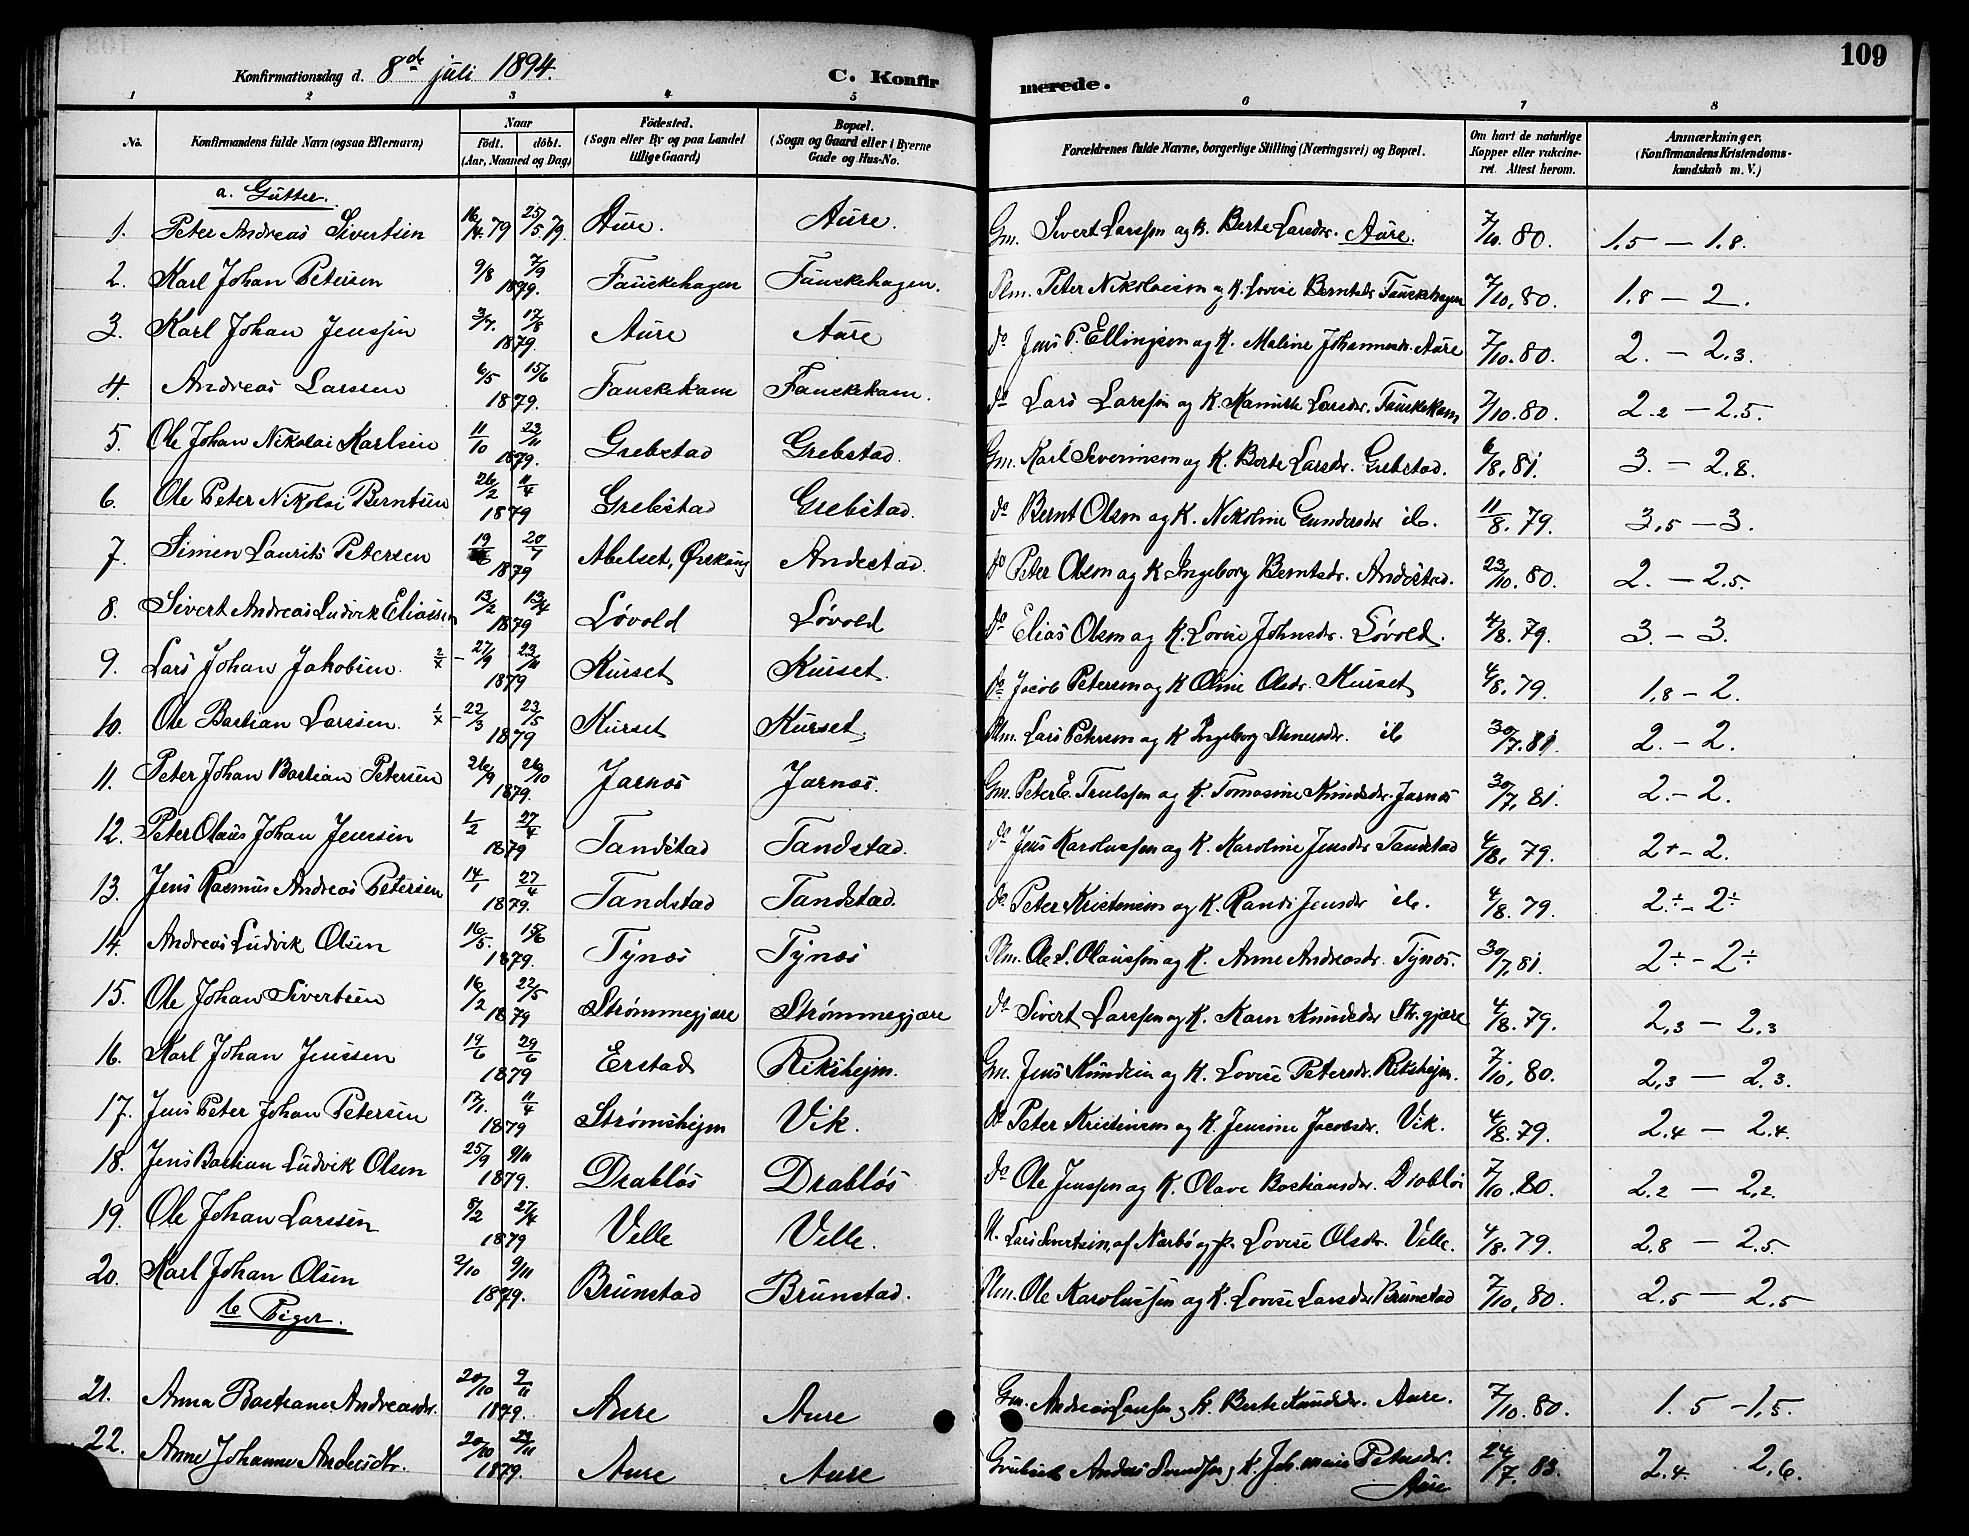 109
Konfirmationsdag d. 8de juli 1894.
C. Konfirmerede.
1 2 3 4 5 6 7 8
No. Konfirmandens fulde Navn (ogsaa Efternavn) Naar födt. döbt. (Aar, Maaned og Dag) Födested. (Sogn eller By og paa Landet tillige Gaard) Bopæl. (Sogn og Gaard eller i Byerne Gade og Hus-No. Forældrenes fulde Navne, borgerlige Stilling (Næringsvei) og Bopæl. Om havt de naturlige Kopper eller vakcineret. Attest herom. Anmærkninger. (Konfirmandens Kristendomskundskab m. V.)
a. Gutter.
1. Peter Andreas Sivertsen 16/4.79 25/5.79. Aure. Aure. Gm. Sivert Larssen og K. Berte Larsdr. Aure. 7/10. 80. 1,5 – 1.8.
2. Karl Johan Petersen 9/8 7/9 1879. Fauskehagen Fauskehagen. Plm. Peter Nikolaisen og K. Lovise Berntsdr Fauskehagen 7/10, 80. 1,8 – 2.
3. Karl Johan Jenssen 3/7. 17/8 1879. Aure Aure do Jens P. Ellingsen og K. Maline Johannesdr. Aure 7/10. 80. 2. – 2,3.
4. Andreas Larssen 6/5 15/6 1879. Fauskekam Fauskekam. do Lars Larssen og K. Larsdr. Fauskekam 7/10. 80. 2.2 – 2.5.
5. Ole Johan Nikolai Karlsen 11/10 23/11 1879. Grebstad Grebstad. Gm. Karl Severinsen og K. Berte Larsdr. Grebstad. 6/8, 81. 3. – 2,8.
6. Ole Peter Nikolai Berntsen 26/2 11/4 1879 Grebstad Grebstad. do Bernt Olsen og K. Nikoline Gundersdr ib. 11/8. 79. 3,5 – 3.
7. Simen Laurits Petersen 19/6 20/7 1879 Abelset, Ørskoug Andestad. do Peter Olsen og K Ingeborg Berntsdr. Andestad. 23/10. 80. 2. – 2.5.
8. Sivert Andreas Ludvik Eliassen 13/2 13/4 1879 Løvold Løvold do Elias Olsen og K. Lovise Johnsdr. Løvold. 4/8. 79. 3. – 3.
9. Lars Johan Jakobsen. 2/x – 27/9 23/11 1879 Kurset Kurset. do Jacob Petersen og K Oline Olsdr. Kurset 4/8. 79. 1,8 – 2.
10. Ole Bastian Larssen. 1/x – 22/3 23/5 1879 Kurset Kurset. Plm. Lars Petersen og K Ingeborg ib 30/7. 81. 2. – 2.
11. Peter Johan Bastian Petersen 26/9 26/10 1879. Jarnes Jarnes. Gm. Peter E. Trulssen og K. Tomasine Knudsdr. Jarnes 30/7, 81. 2. – 2.
12. Peter Olaus Johan Jenssen 1/2 27/4 1879 Tandstad Tandstad. do Jens Karolussen og K. Karoline Jensdr Tandstad 4/8, 79. 2+ – 2.
13. Jens Rasmus Andreas Petersen 14/1 27/4 1879. Tandstad Tandstad. do Peter Kristensen og K. Randi Jensdr ib. 4/8. 79. 2÷ – 2÷
14. Andreas Ludvik Olsen 16/5. 15/6 1879. Tynes Tynes Plm. Ole S. Olaussen og K. Anne Andreasdr. Tynes. 30/7, 81. 2÷ – 2÷
15. Ole Johan Sivertsen 16/2 22/5 1879 Strømmegjære Strømmegjære do Sivert Larssen og K. Karn Knudsdr Str.gjære 4/8. 79. 2,3 – 2,3
16. Karl Johan Jenssen 19/6 29/6 1879 Erstad Rekshejm. Gm. Jens Knudsen og K. Lovise Petersdr. Rekshejm. 7/10, 80. 2,3 – 2.3.
17. Jens Peter Johan Petersen 13/1. 11/4 1879 Strømshejm Vik. do Peter Kristensen og K. Jensine Jacobsdr. Vik. 4/8. 79. 2.4 – 2.4.
18. Jens Bastian Ludvik Olsen 25/9 9/11 1879. Drabløs Drabløs do Ole Jenssen og K. Olave Bastiansdr. Drabløs 7/10. 80. 2.2 – 2,2.
19. Ole Johan Larssen 8/2 27/4 1879 Velle Velle. Lars Sivertsen, af Nærbø og p. Lovise Olsdr. Velle. 4/8. 79. 2,8 – 2.5.
20. Karl Johan Olsen 2/10 9/11 1879. Brunstad Brunstad. Plm. Ole Karolussen og K. Lovise Larsdr Brunstad 7/10, 80. 2,5 – 2,5
b Piger.
21. Anna Bastiane Andreasdr. 20/10 9/11 1879. Aure Aure Gm. Andreas Larssen og K. Berte Knudsdr. Aure. 7/10. 80. 1.5 – 1,5.
22. Anne Johanne Andersdtr. 20/10 23/11 1879. Aure Aure Anders Svendsen og K. Petersdr. Aure 24/7. 83. 2.4. 2,6.